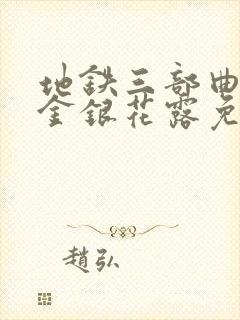 地鉄三部曲
金銀花露免
趙弘